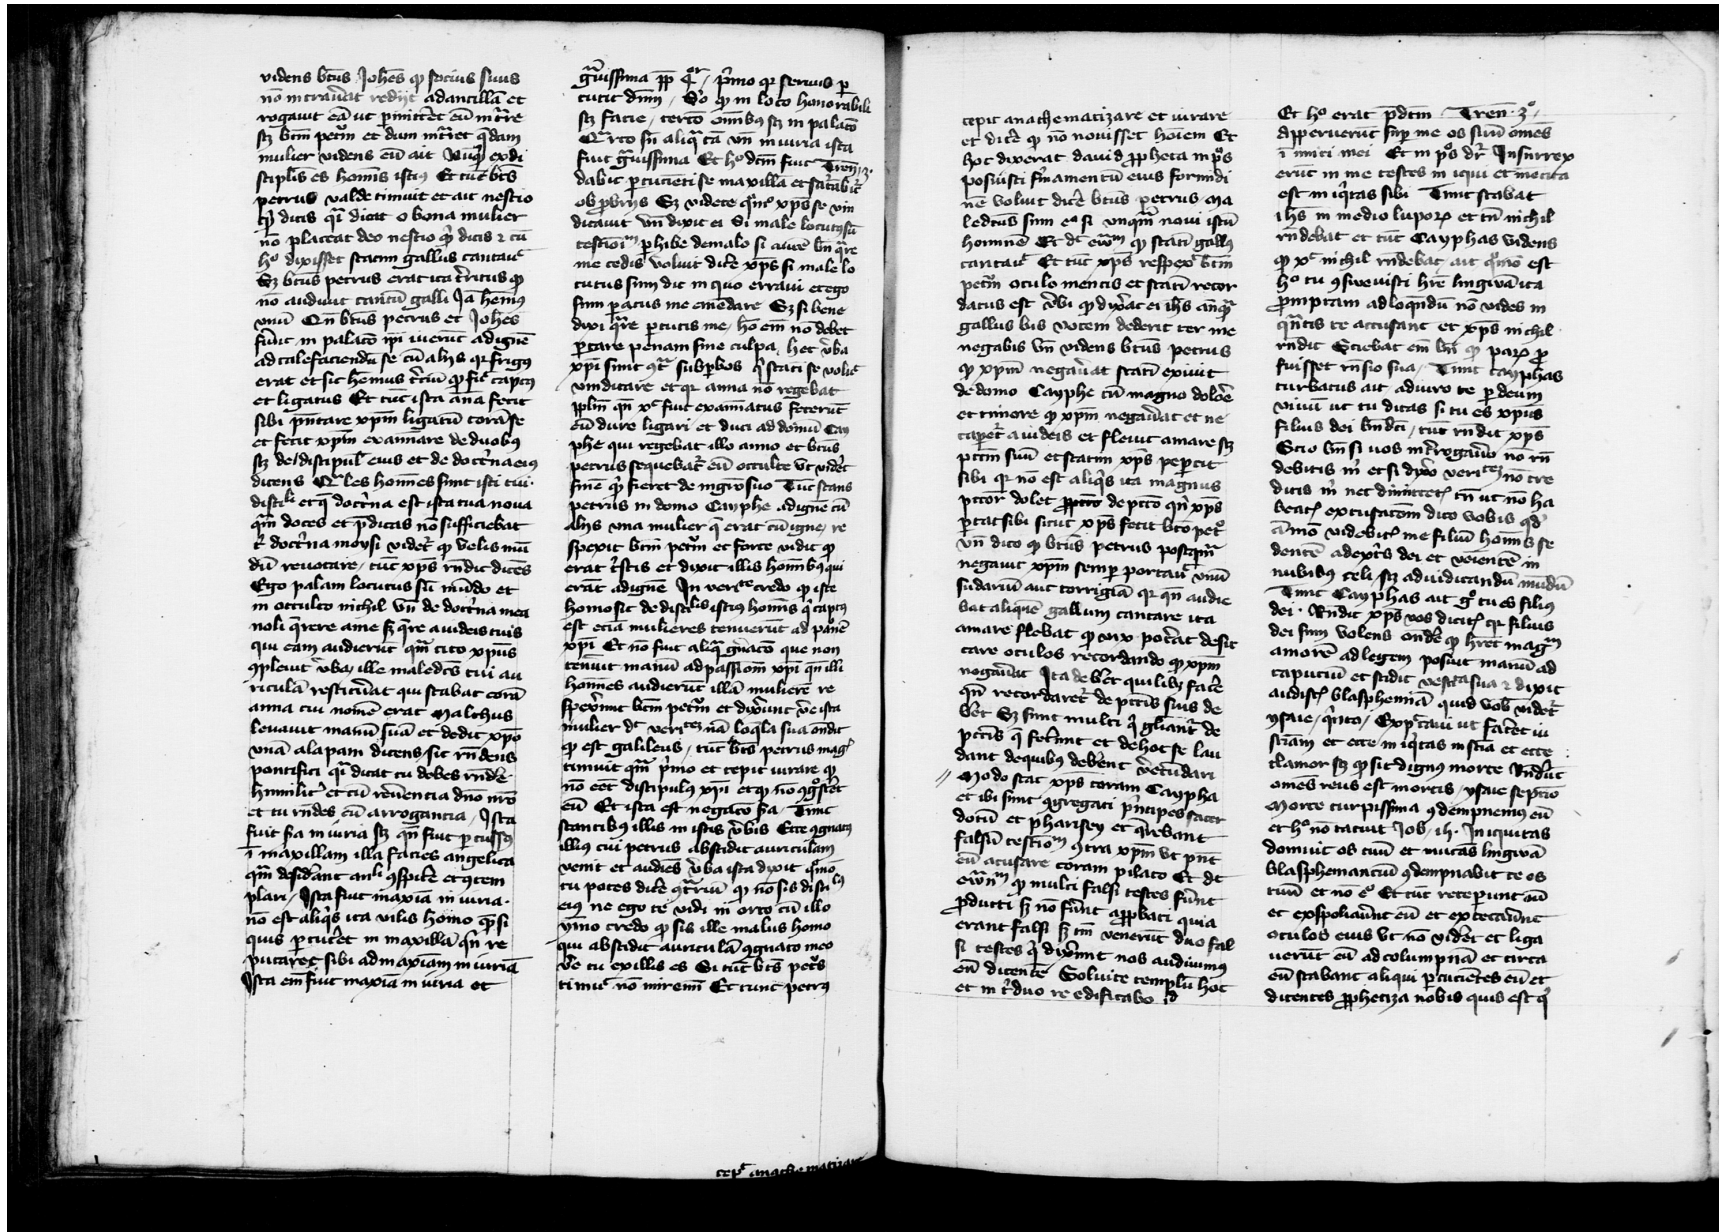 videns btus Johes qp socius suus
no intrauat redijt ad ancillā et
rogauit eā ut pmitteret eū intre
sz btm petrū et dum intret qdam
mulier videns eū ait Nūqd ex di
scipulis es hominis istius Et tūc bts
petrus valde timuit et ait nescio
qd dicis qi dicat o bona mulier
no placeat deo nescio qd dicis z cū
ho dixisset statim gallus cantauit
Sz btus petrus erat ita territus qp
no audiuit cantū galli Ja hemus
vnū Qn btus petrus et Johes
fuit in palaco ipi iuerūt ad ignē
ad calefaciendū se cū alijs qr frigus
erat et sic hemus terciū qp fuit captus
et ligatus Et tūc ista ana fecit
sibi pntare xpm ligatū corā se
et fecit xpm examiare de duobus
sz de discipulis eius et de doctrina eius
dicens Qles homines sunt isti tui
discipuli et q doctrina est ista tua noua
qm doces et pdicas no sufficiebat
doctrina moysi videt qp velis mū
dū reuocare / tūc xps rndit dices
Ego palam locutus sū mūdo et
in occulto nichil Vn de doctrina mea
noli qrere a me sz qre a iudeis tuis
qui eam audierūt qm cito xpus
9pleuit vba / ille maledcus cui au
riculā restituerat qui stabat corā
anna cui nomē erat Malchus
leuauit manū suā et dedit xpo
vnā alapam dicens sic rndens
pontifici qi dicat tu debes rndere
humilit et cū reuerencia dno nro
et tu rndes cū arrogancia / Ista
fuit sa iniuria sz qn fuit percussus
i maxillam illa facies angelica
qm desiderant anli 9spicere et 9tem
plari / Ista fuit maxia iniuria
no est aliqs ita vilis homo q si
quis pcuteret in maxillā qn re
putaret sibi ad maxiam iniuriā
Ista em fuit maxia iniuria et
guissima pp qor / primo qr seruus p
cutit dnm / So qp in loco honorabili
sz facie / tercio omibus sz in palaco
Qrto sn aliq ca vn iniuria ista
fuit guissima Et ho dcm fuit Tren 3
dabit pcucieti se maxillā et satabit
obprobrijs Sz videte quo xps se vin
dicauit vn dixit ei Si male locutus sū
testioim phibe de malo si aute bn qre
me cedis voluit dicere xps si male lo
cutus sum dic in quo erraui et ego
sum paratus me emēdare Sz si bene
dixi qre pcutis me / ho em no debet
portare penam sine culpa / hec vba
xpi sunt 9tra supbos q stati se volunt
vindicare et qr anna no regebat
pplm qn xc fuit examiatus fecerūt
eū dure ligari et duci ad domū Cay
phe qui regebat illo anno et btus
petrus sequebat eū occulte vt videt
finē qd fieret de mgro suo Tūc stans
petrus in domo Cayphe ad ignē cū
alijs vna mulier q erat cū igne / re
spexit btm petrū et forte vidit qp
erat tristis et dixit illis hominibus qui
erāt ad ignē In veritate credo qp iste
homo sit de discipulis istius hominis q captus
est eciā mulieres tenuerūt ad passionē
xpi Et no fuit aliq gnaco que non
tenuit manū ad passionem xpi qn illi
homines audierūt illā mulierē re
spexerunt btm petrū et dixerunt vere ista
mulier dicit veritatem nā loqla sua ondit
qp est galileus / tunc bts petrus magis
timuit qm primo et cepit iurare qp
no eet discipulus xpi et qp no 9gsceret
eū Et ista est negaco sa Tunc
stantibus illis in istis vbis Ecce 9gnatus
illius cui petrus abscidit auriculam
venit et audies vba ista dixit quo
tu potes dicere 9trariū qp no sis discipulus
eius ne ego te vidi in orto cū illo
ymo credo qp sis ille malus homo
qui abscidit auriculā 9gnato meo
vere tu ex illis es Si tūc bts petrus
timuit no mirem Et tunc petrus
cepit anachematizare
cepit anachematizare et iurare
et dicere qp no nouisset hoiem Et
hoc dixerat dauid ppheta in ps
posuisti firmamentū eius formidi
nē voluit dicere btus petrus ma
ledcus sim ego si vnqm noui istū
hominē Et dt ewm qp stati gallus
cantauit Et tūc xps respexit btm
petrū oculo mentis et stati recor
datus est vbi qp dixerat ei ihs anqm
gallus bis vocem dederit ter me
negabis vn videns btus petrus
qp xpm negauerat stati exiuit
de domo Cayphe cū magno dolore
et timore qp xpm negauerat et ne
caperet a iudeis et fleuit amare sz
pctm suū et statim xps pepercit
sibi qr no est aliqs ita magnus
pctor dolet de pcto qn xps
pcat sibi sicut xps fecit bto petro
vn dico qp btus petrus postqm
negauit xpm semper portauit vnū
sudariū aut corrigiā qr qn audie
bat aliquē gallum cantare ita
amare flebat qp vix poterat desic
care oculos recordando qp xpm
negauerat Ita deberet quilibz facere
qn recordaret de pctis suis de
bet Sz sunt multi q gliant de
pctis q fecerunt et de hoc se lau
dant de quibus deberent verecūdari
// Modo stat xps coram Caypha
et ibi sunt 9gregati principes sacer
dotū et pharisey et qrebant
falsū testiom 9tra xpm vt pnt
eū acusare coram pilato Et dt
ewm qp multi falsi testes sunt
producti sz no sunt approbati quia
erant falsi sz tm venerūt duo fal
si testes q dixerunt nos audiuimus
eū dicente Soluite templū hoc
et in triduo reedificabo id
Et ho erat pdcm Tren 3o
Apperuerūt super me os suū omēs
inimici mei Et in ps dr Insurrex
erūt in me testes iniqui et mētita
est iniqtas sibi Tunc stabat
ihs in medio luporz et tn nichil
rndebat et tūc Cayphas videns
qp xc nichil rndebat / ait quo est
ho tu 9sueuisti hre lingwā ita
promptam ad loqndū no vides in
qntis te accusant et xps nichil
rndit Sciebat em bn qp parz pro
fuisset rnsio sua / Tunc Cayphas
turbatus ait adiuro te p deum
viuū ut tu dicas si tu es xpus
filius dei bndci / tunc rndit xps
Scio bn si vos interrogauero no rn
debitis m et si dixero veritatem no cre
ditis m nec dimittetz tn ut no ha
beatz excusacom dico vobis qd
amo videbitz me filiū hominis se
dentē a dextris dei et veientē in
nubibus celi sz ad iudicandū mūdū
Tunc Cayphas ait go tu es filius
dei · Rndit xps vos dicitz qr filius
dei sum volens ondere qp hret magm
amorē ad legem posuit manū ad
capuciū et scidit vestīta sua z dixit
audistz blasphemiā quid vob videt
ysaie / quito / Expectaui ut faceret iu
sticiam et ecce iniqtas iusticia et ecce
clamor sz qp sit dignus morte Rnderunt
omēs reus est mortis / ysaie septio
Morte turpissima 9dempnemus eū
et ho no tacuit Job / ih. Iniquitas
domuit os tuū et mutās lingwā
blasphemanciū 9dempnabit te os
tuū et no eo Et tūc receperunt eū
et exspoliauerunt eū et exteterunt
oculos eius vt no videret et liga
uerūt eū ad columpnā et circa
eū stabant aliqui pcucietes eū et
dicentes pphetiza nobis quis est q